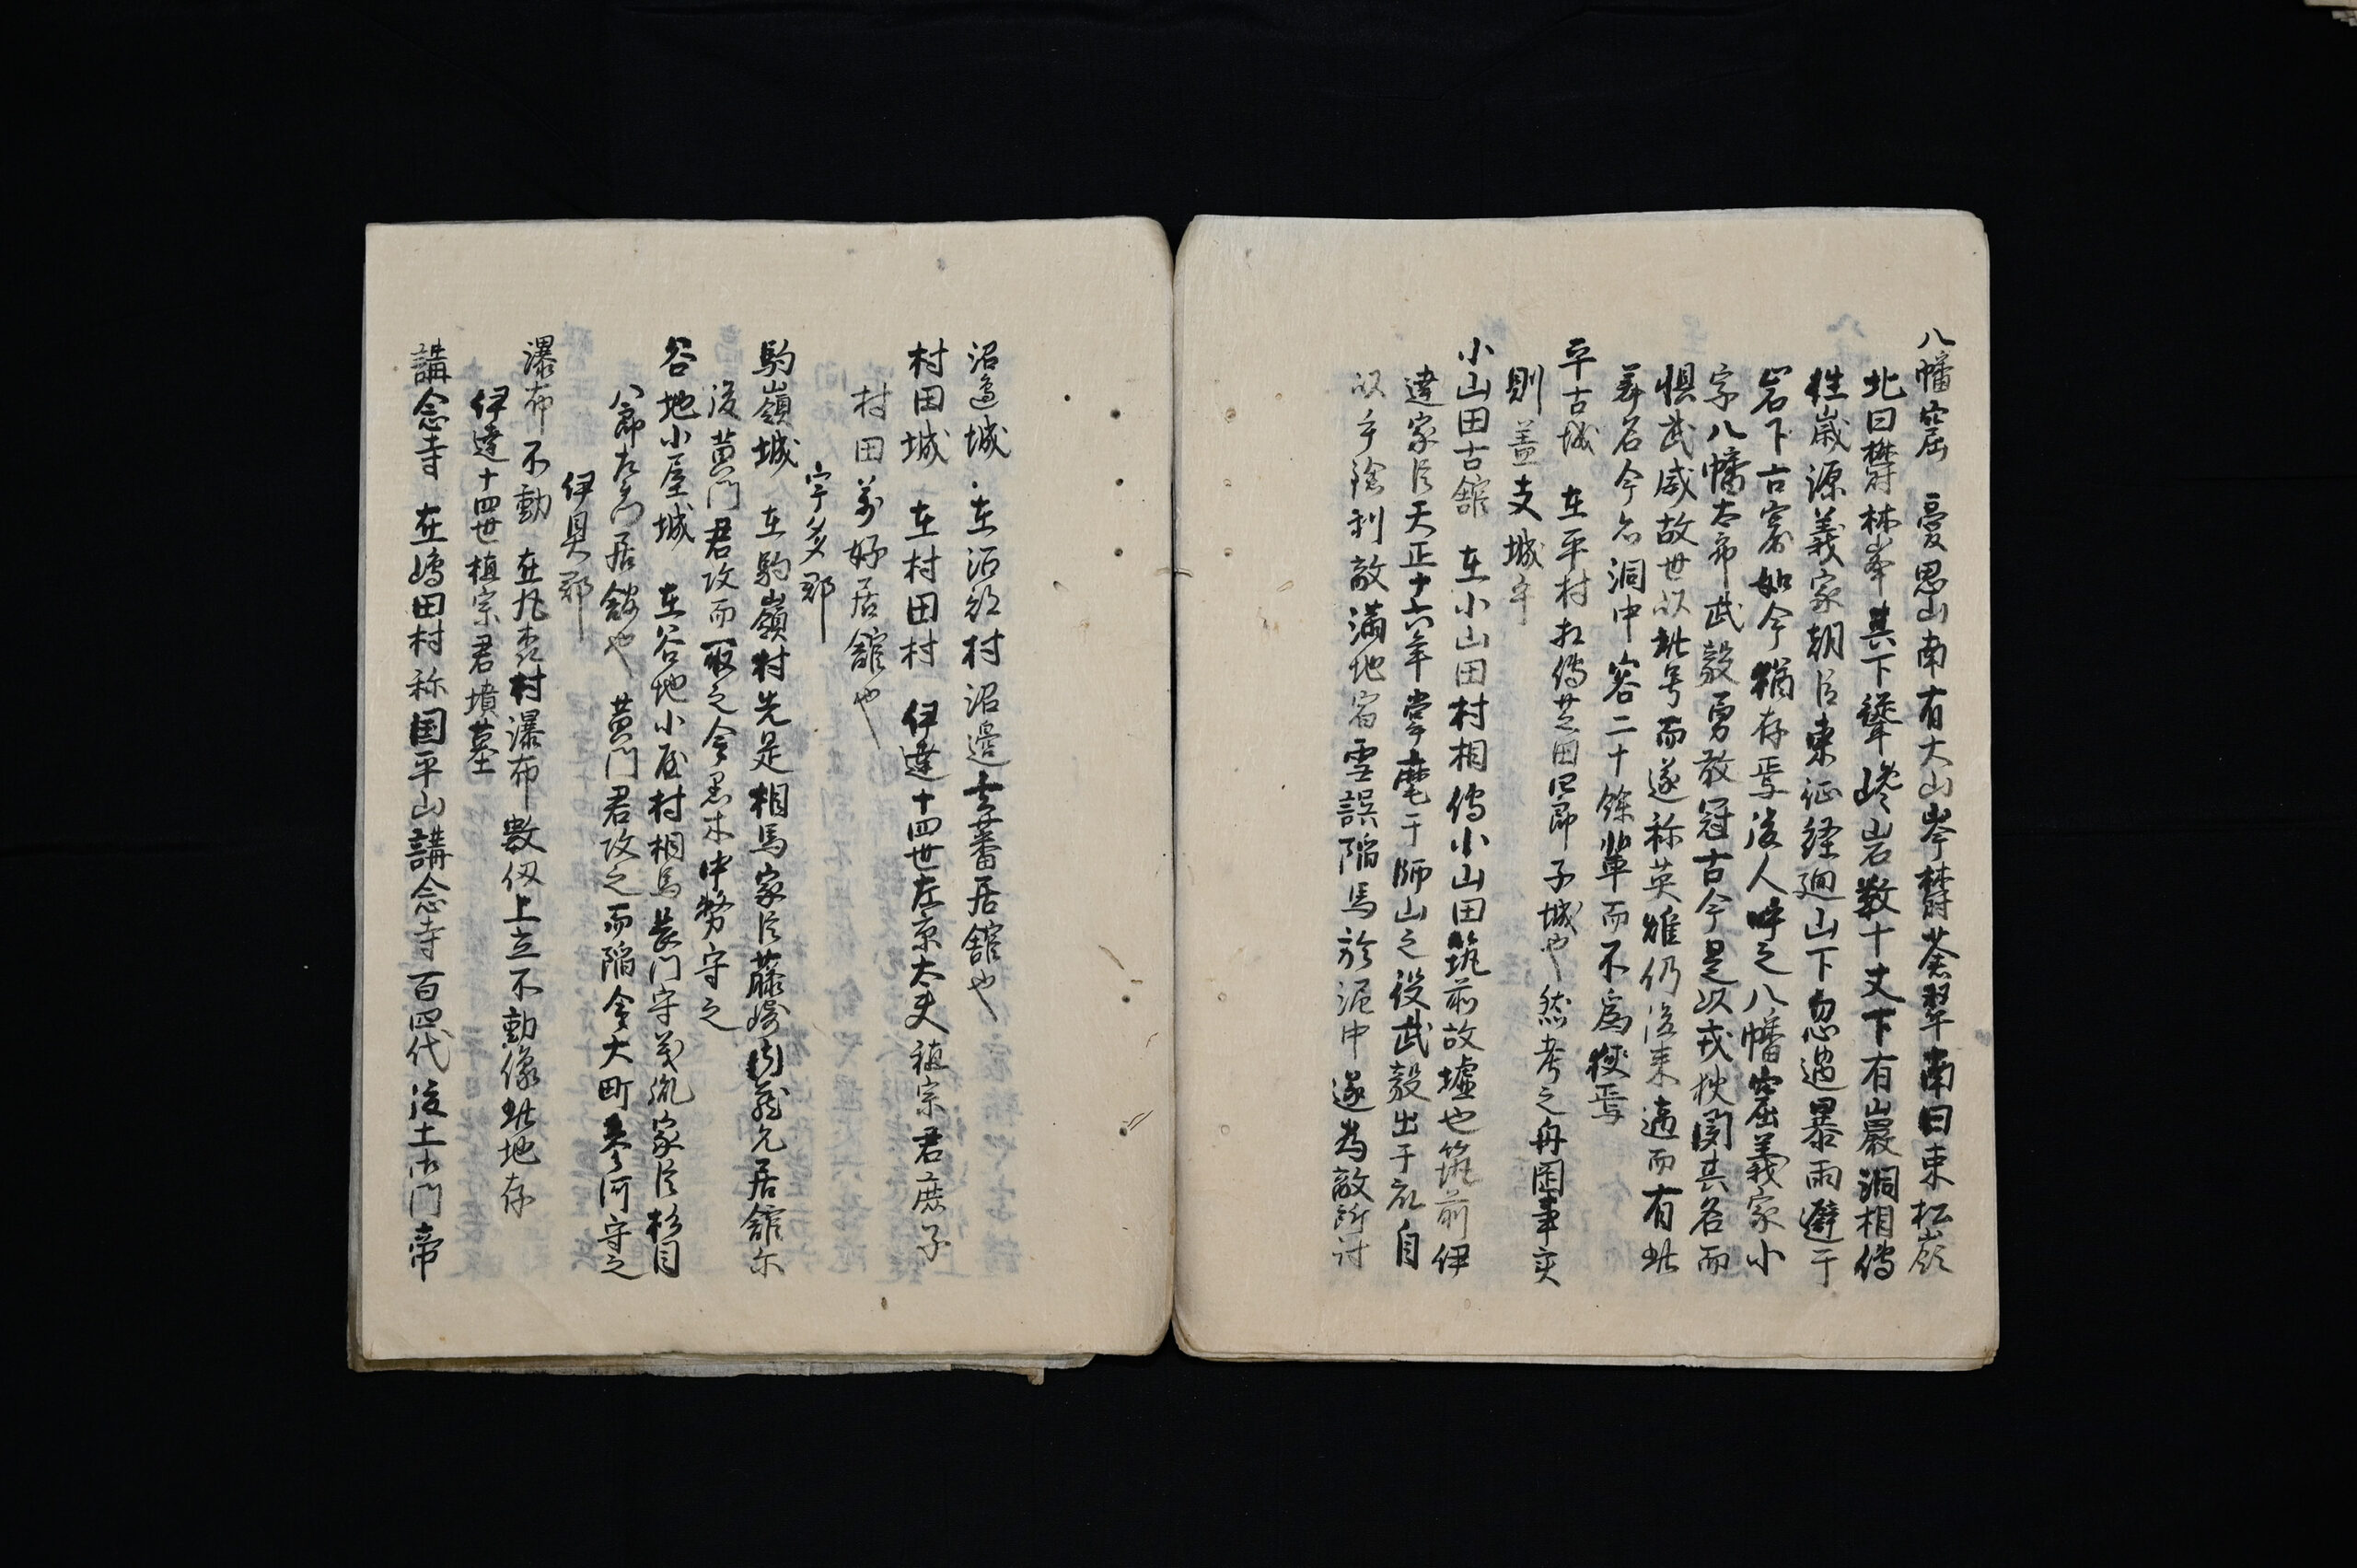 八幡窟　憂思山南有大山岑欝蒼翠南曰東松嶺
北曰欝林峯其下聳巉岩数十丈下有巖洞相傳
徃歳源義家朝臣東征経廻山下忽遇暴雨避于
岩下古窟如今猶存焉後人呼之八幡窟義家小
字八幡太命武毅勇敢冠古今是以戎狄聞其名而
惧武威故世以此号而遂称英雄仍後来適而有此
名今名洞中容二十餘輩而不為狭焉
平古城　在平村相傳芝田四郎子城也然考之舟岡事実
則蓋支城乎
小山田古舘　在小山田村相傳小山田筑前故墟也筑前伊
達家臣天正十六年掌麾于師山之役武毅出于衆自
以手除利敵満地宿雪誤陥馬於泥中遂為敵所討
沼邉城　在沼邉村沼邊玄蕃居舘也
村田城　在村田村　伊達十四世左京太夫稙宗君庶子
村田万好居舘也
宇多郡
駒嶺城　在駒嶺村先是相馬家臣藤崎居舘尓
後黄門君攻而取之令黒木中務守之
谷地小屋城　在谷地小屋村相馬長門守義胤家臣杉目
八郎左衛門居舘也　黄門君攻之而陥令大町参河守之
伊具郡
瀑布不動　在丸森村瀑布數仭上立不動像此地存
伊達十四世稙宗君墳墓
講念寺　在嶋田村称国平山講念寺百四代後土御門帝